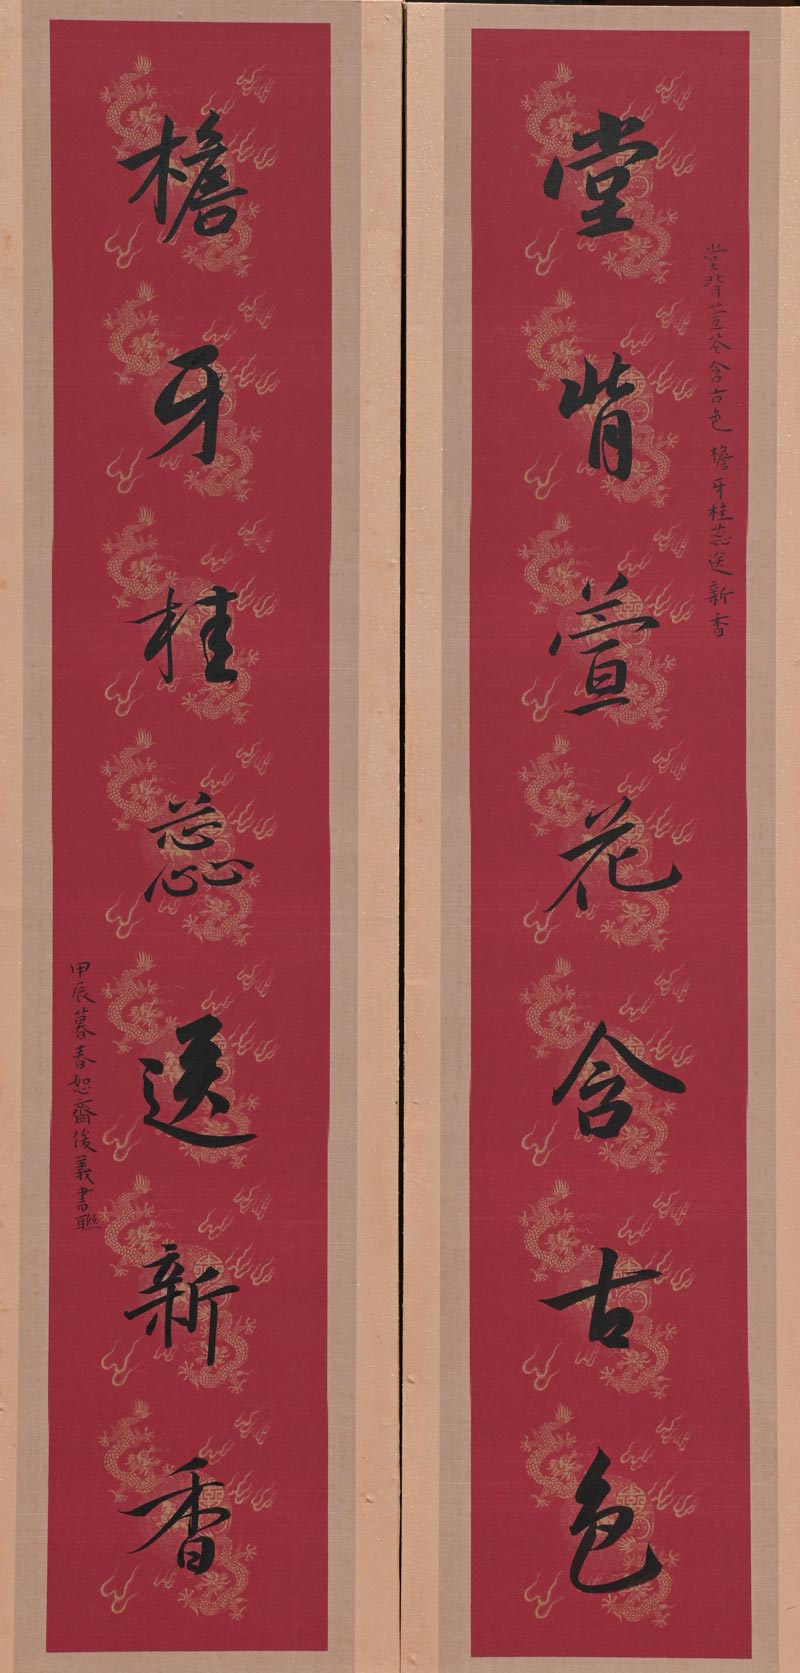 堂背萱花含古色
堂背萱苓含古色 檐牙桂蕊送新香
檐牙桂蕊送新香
甲辰暮春恕齋俊義書聯